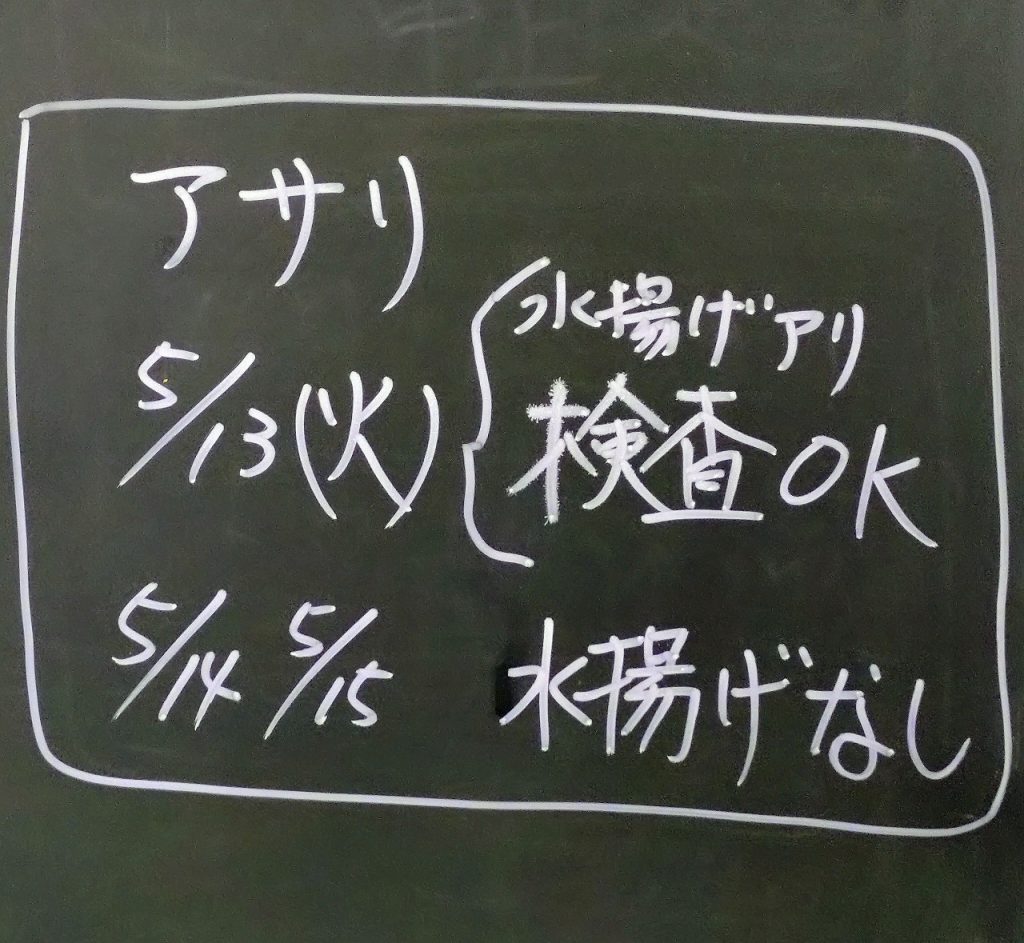 アサリ
水揚げアリ
5/13(火) 検査OK
5/14 5/15 水揚げなし